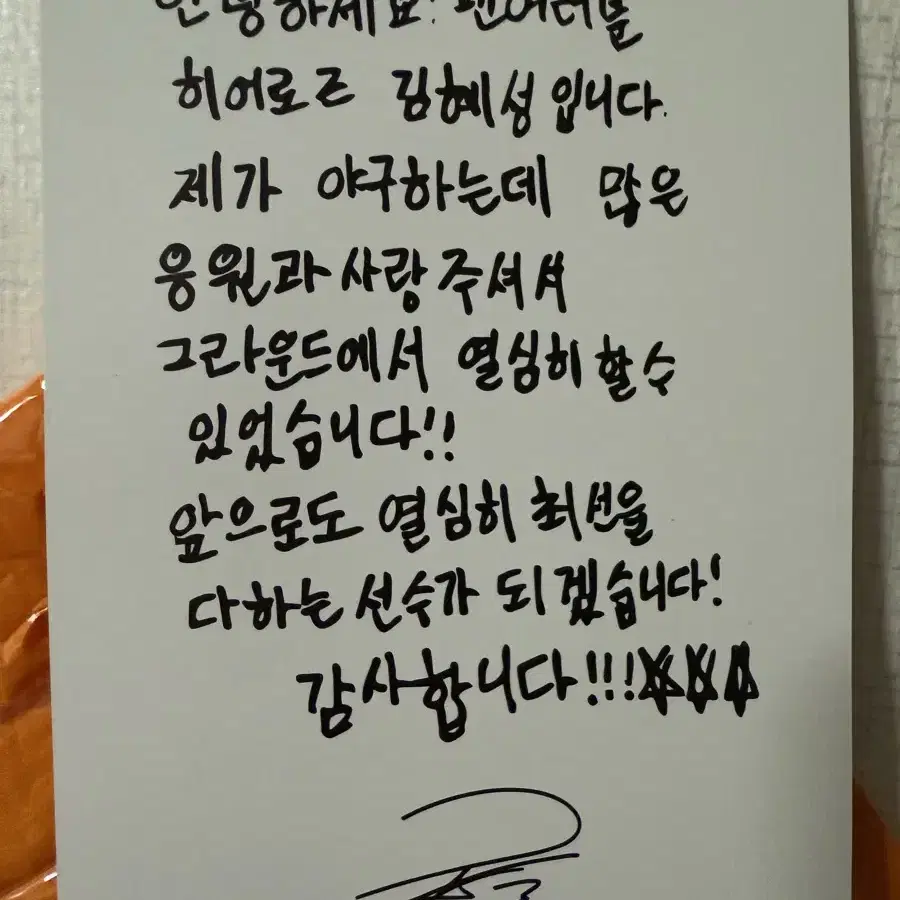 안녕하세요! 팬여러분
히어로즈 김혜성입니다.
제가 야구하는데 많은
응원과 사랑 주셔서
그라운드에서 열심히 할 수
있었습니다!!
앞으로도 열심히 최선을
다하는 선수가 되겠습니다!
감사합니다!!!☆☆☆